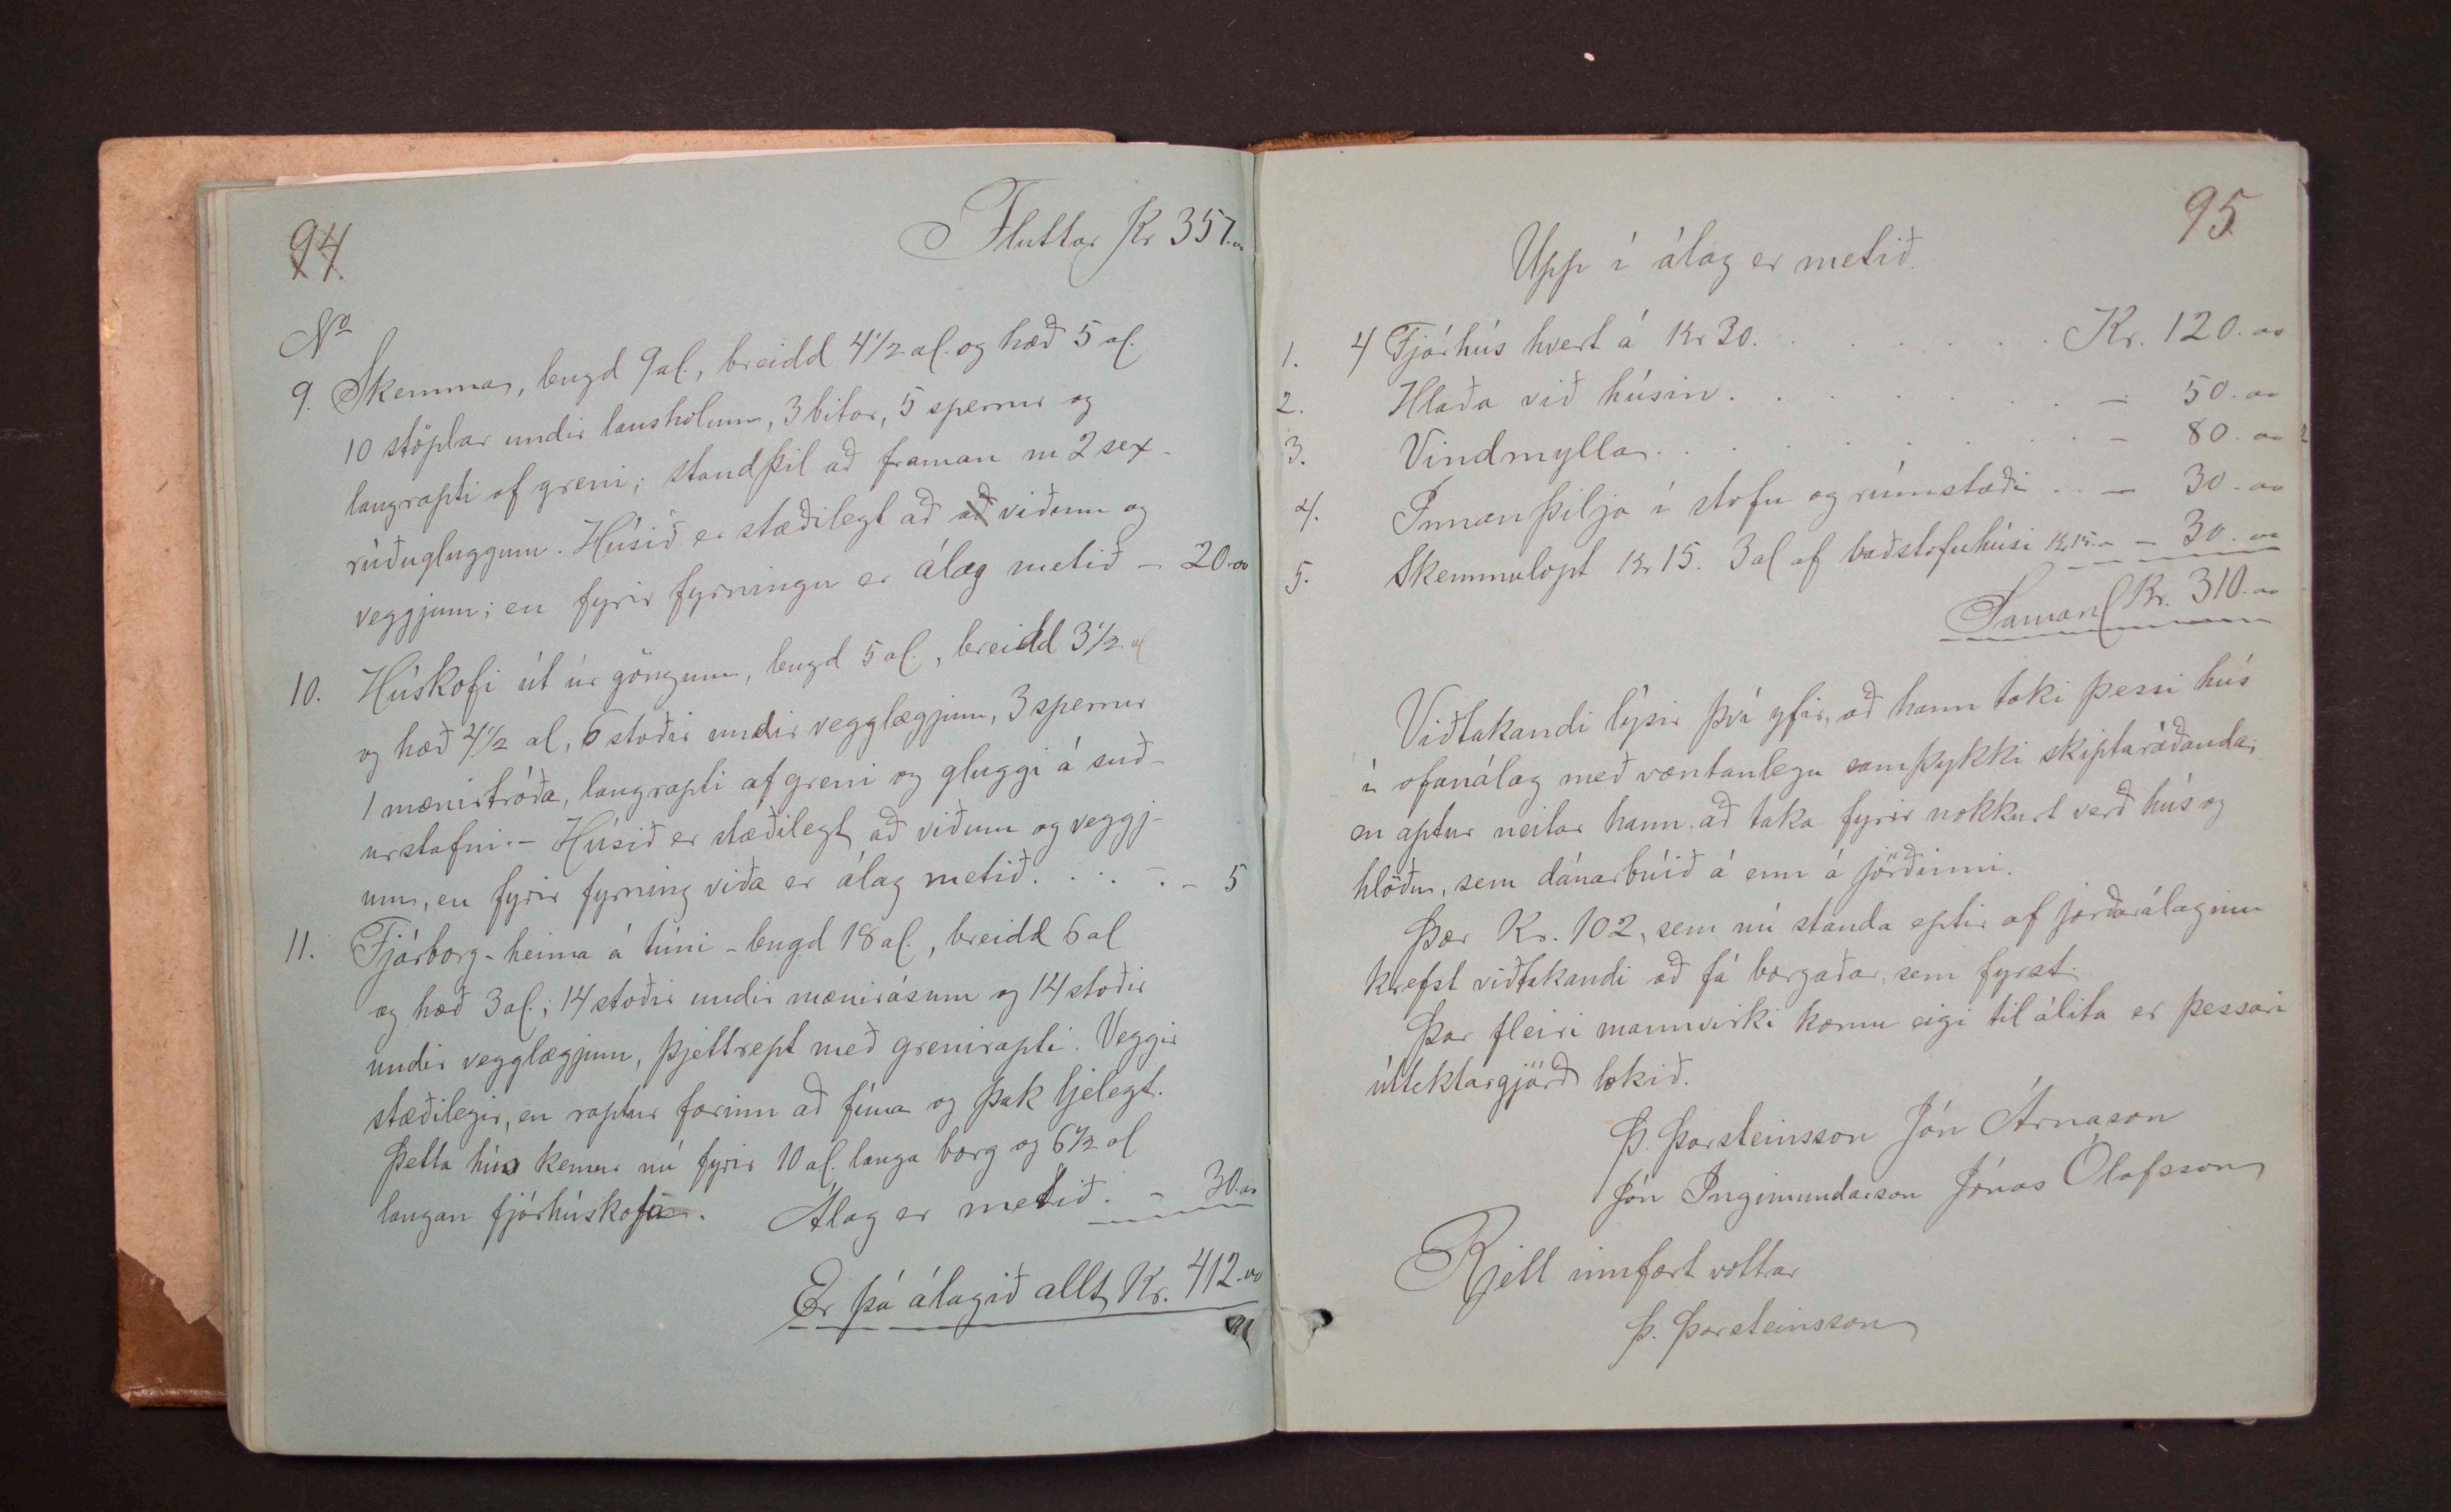 94
Fluttar Kr 357.00
No
9. Skemma, lengd 9 al., breidd 4 1/2 al. og hæð 5 al.
10 stöplar undir lausholum, 3 bitar, 5 sperrur og
langrapti af greni; standþil að framan m 2 sex-
rúðugluggum. Húsið er stæðilegt að að viðum og
veggjum; en fyrir fyrningu er álag metið - 20.00
10. Húskofi út úr göngum, lengd 5 al., breidd 3 1/2 al
og hæð 4 1/2 al, 6 stoðir undir vegglægjum, 3 sperrur
1 mænistróða, langrapti af greni og gluggi á suð-
urstafni. - Húsið er stæðilegt að viðum og veggj-
um, en fyrir fyrning viða er álag metið. . . . - - 5
11. Fjárborg - heima á túni - lengd 18 al., breidd 6 al
og hæð 3 al.; 14 stoðir undir mænirásum og 14 stoðir
undir vegglægjum, þjettrept með grenirapti. Veggir
stæðilegir, en raptur farinn að fúna og þak ljelegt.
Þetta hús kemur nú fyrir 10 al. langa borg og 6 1/2 al
langan fjárhúskofa. Álag er metið. - 30.00
Er þá álagið allt Kr. 412.00
95
Upp í álag er metið.
1. 4 Fjárhús hvert á Kr 30. . . . . . . . Kr. 120.00
2. Hlaða við húsin. . . . . . . . - 50.00
3. Vindmylla. . . . . . . . - 80.00
4. Innanþilja í stofu og rúmstæði . . - 30.00
5. Skemmulopt Kr 15. 3 al af baðstofuhúsi Kr 15.- - 30.00
Saman Kr. 310.00
Viðtakandi lýsir því yfir, að hann taki þessi hús
í ofanálag með væntanlegu samþykki skiptaráðanda;
en aptur neitar hann, að taka fyrir nokkurt verð hús og
hlöðu, sem dánarbúið á enn á jörðinni.
Þær Kr. 102, sem nú standa eptir af jarðarálaginu
krefst viðtakandi að fá borgaðar, sem fyrst.
Þar fleiri mannvirki komu eigi til álita er þessari
úttektargjörð lokið.
Þ. Þorsteinsson Jón Árnason
Jón Ingimundarson Jónas Ólafsson
Rjett innfært vottar
Þ. Þorsteinsson